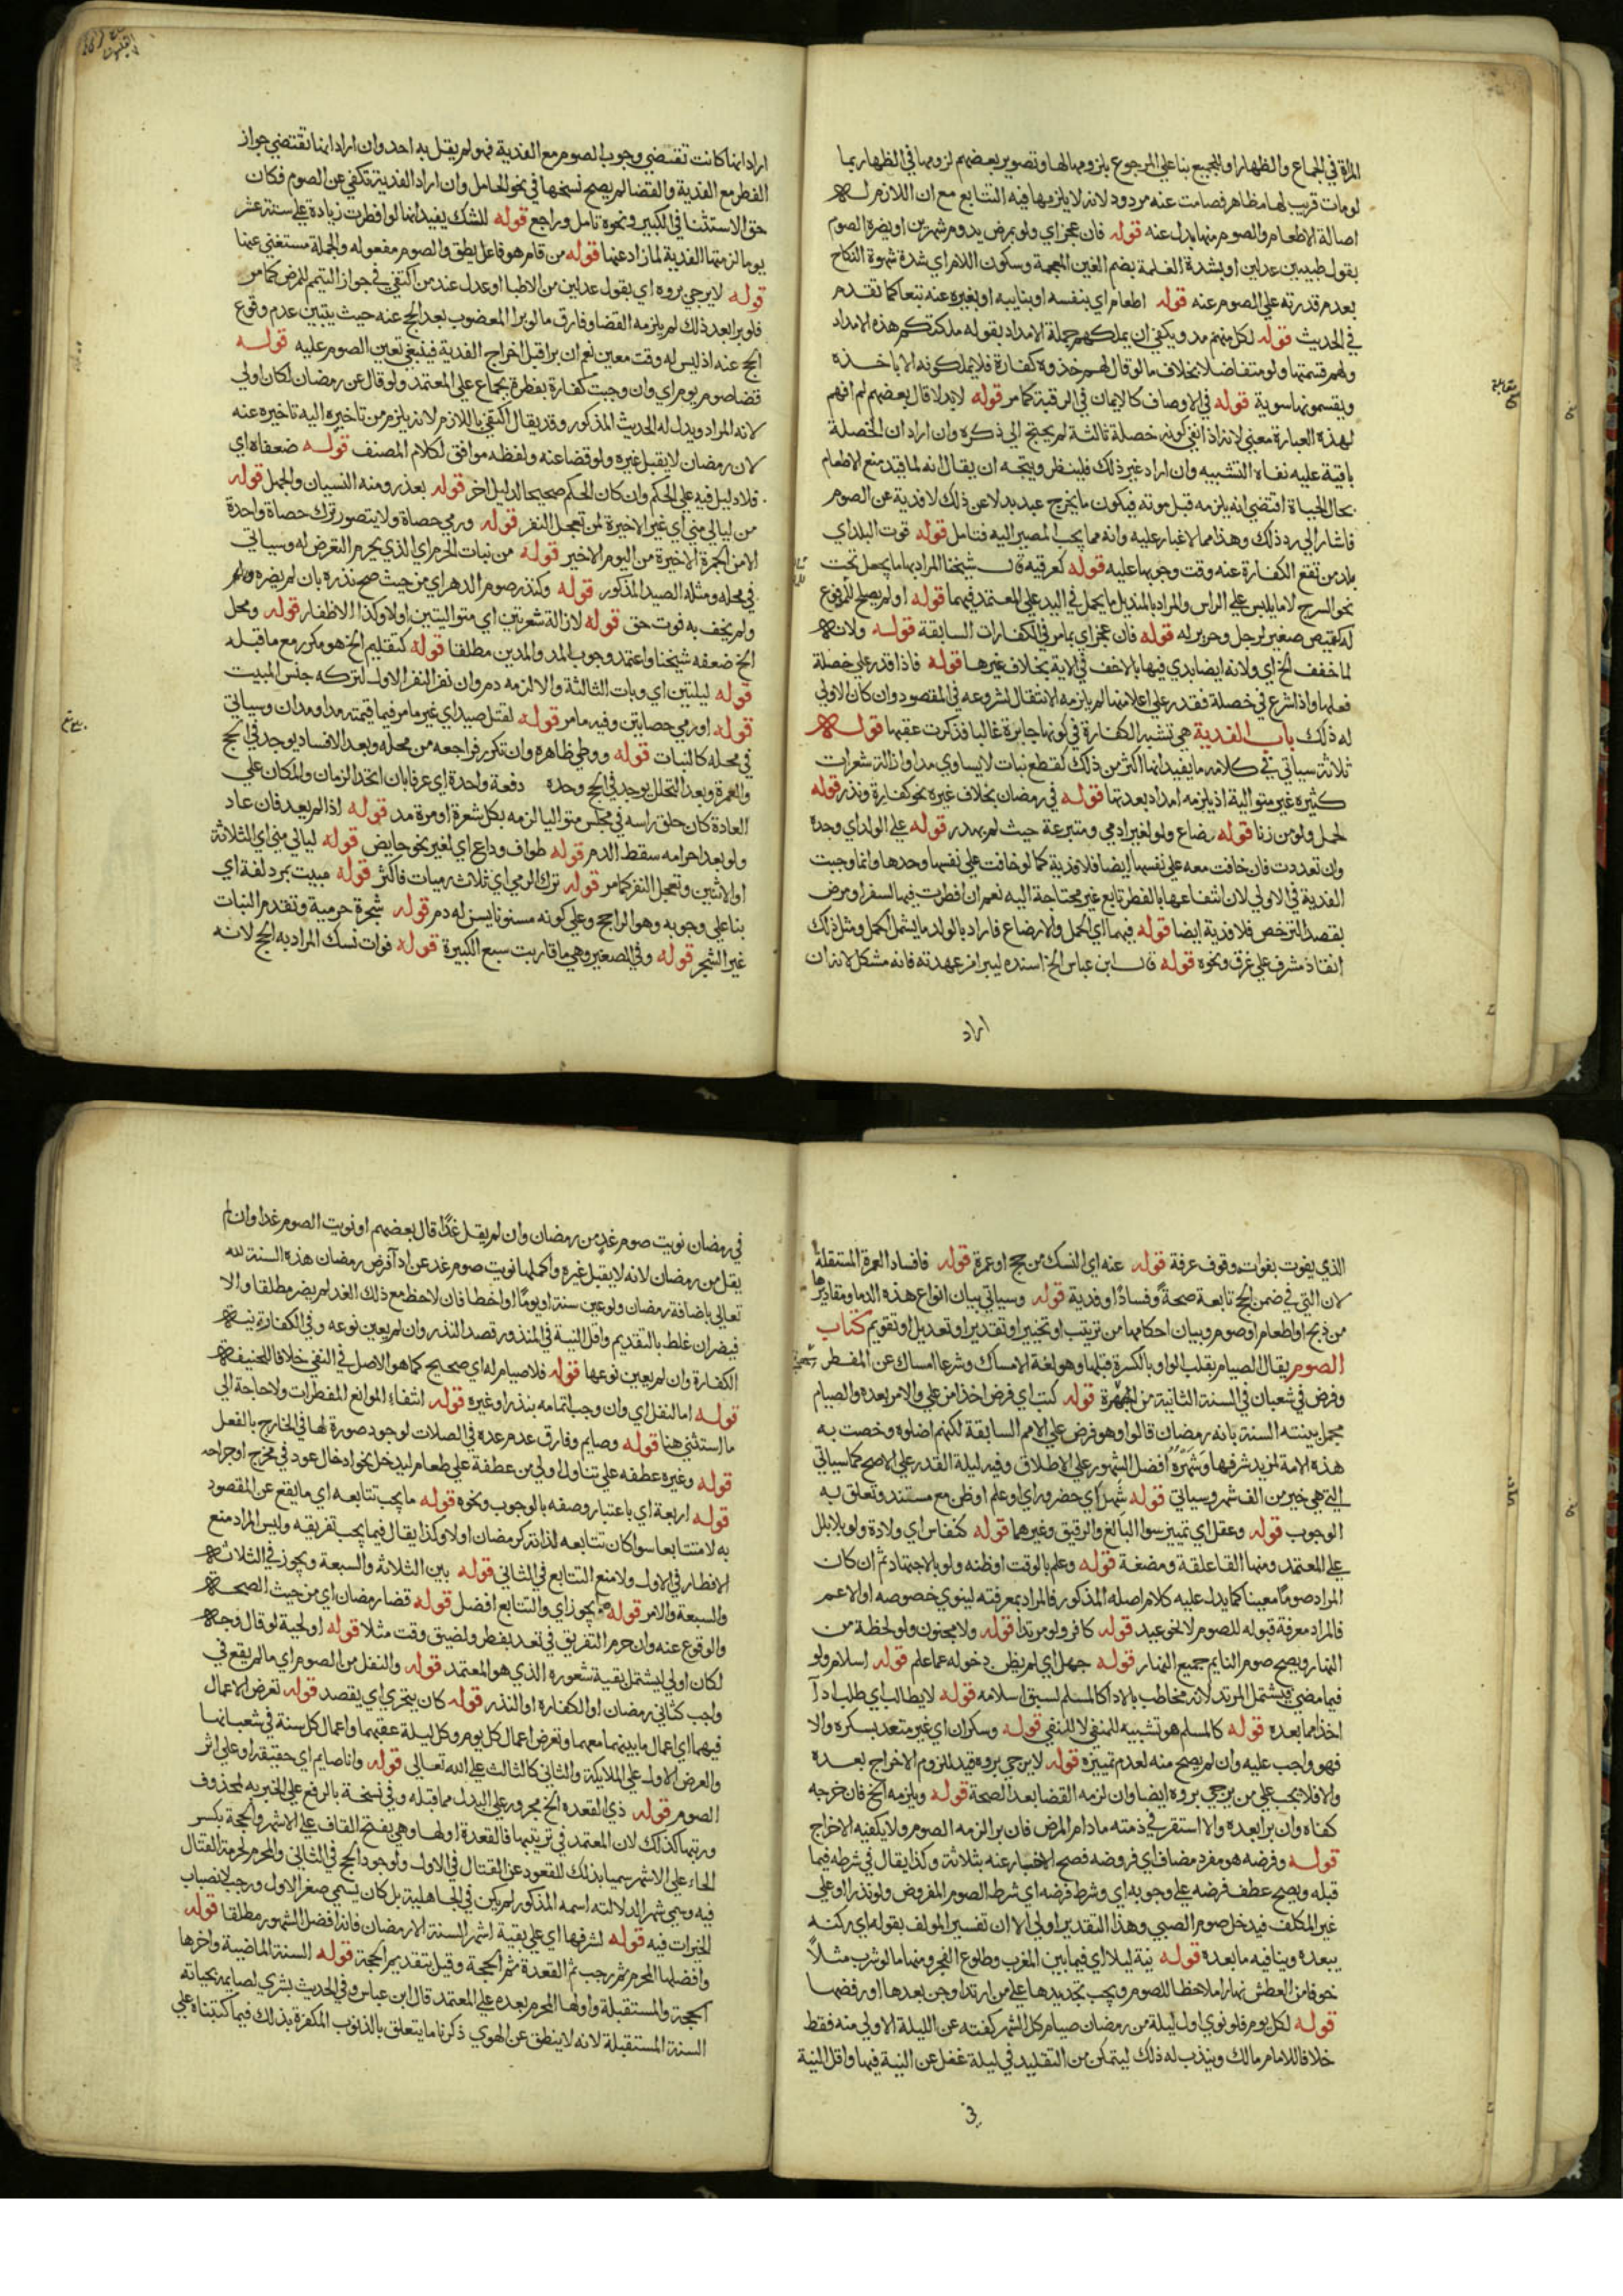 المراة في الجماع والظهار او للجميع بنا علي المرجوع بلزومها لها وتصوير بعضهم لزومها في الظهار بما
لومات قريب لها مظاهر فصامت عنه مردود لانه لا يلزمها فيه التتابع مع ان اللازم له
اصالة الاطعام والصوم منها بدل عنه قوله فان عجز اي ولو بمرض يدوم شهرين او يضره الصوم
بقول طبيبين عدلين او بشدة الغلمة بضم الغين المعجمة وسكون اللام اي شدة شهوة النكاح
بعدم قدرته علي الصوم عنه قوله اطعام اي بنفسه او بنايبه او بغيره عنه تبعا كما تقدم
في الحديث قوله لكل منهم مد ويكفي ان يملكهم جملة الامداد بقوله ملكتكم هذه الامداد
ولهم قسمتها ولو متفاضلا بخلاف ما لو قال لهم خذوه كفارة فلا يملكونه الا باخذه
ويقسمونها سوية قوله في الاوصاف كالايمان في الرقبة كما مر قوله لا بدلا قال بعضهم لم افهم
لهذه العبارة معني لانه اذا انتفي كونه خصلة ثالثة لم يحتج الي ذكره وان اراد ان الخصلة
باقية عليه نفاه التشبيه وان اراد غير ذلك فلينظر ويتجه ان يقال انه لما قيد منع الاطعام
بحال الحياة اقتضي انه يلزمه قبل موته فيكون ما يخرج عبد بدلا عن ذلك لا فدية عن الصوم
فاشار الي رد ذلك وهذا مما لا غبار عليه وانه مما يجب المصير اليه فتامل قوله قوت البلد اي
بلد من تقع الكفارة عنه وقت وجوبها عليه قوله كعرقية قال شيخنا المراد بها ما يجعل تحت
نحو السرج لا ما يلبس علي الراس والمراد بالمنديل ما يحمل في اليد علي المعتمد فيهما قوله او لم يصلح للمدفوع
له كقميص صغير لرجل وحرير له قوله فان عجز اي بما مر في الكفارات السابقة قوله ولانه
لما خفف الخ اي ولانه ايضا بدي فيها بالاخف في الاية بخلاف غيرها قوله فاذا قدر علي خصلة
فعلها واذا شرع في خصلة فقدر علي اعلا منها لم يلزمه الانتقال لشروعه في المقصود وان كان الاولي
له ذلك باب الفدية هي تشبه الكفارة في كونها جابرة غالبا فذكرت عقبها قوله
ثلاثة سياتي في كلامه ما يفيد انها اكثر من ذلك كقطع نبات لا يساوي مدا او ازالة شعرات
كثيره غير متوالية اذ يلزمه امداد بعدتها قوله في رمضان بخلاف غيره نحو كفارة ونذر قوله
لحمل ولو من زنا قوله رضاع ولو لغير ادمي ومتبرعة حيث لم يهدر قوله علي الولد اي وحده
وان تعددت فان خافت معه علي نفسها ايضا فلا فدية كما لو خافت علي نفسها وحدها وانما وجبت
الفدية في الاولي لان انتفاعها بالفطر تابع غير محتاجة اليه نعم ان افطرت فيها لسفر او مرض
بقصد الترخص فلا فدية ايضا قوله فيهما اي الحمل والارضاع فاراد بالولد ما يشمل الحمل ومثل ذلك
انقاذ مشرف علي غرق ونحوه قوله قال ابن عباس الخ اسنده ليبرا من عهدته فانه مشكل لانه ان
اراد
اراد انها كانت تقتضي وجوب الصوم مع الفدية فهو لم يقل به احد وان اراد انها تقتضي جواز
الفطر مع الفدية والقضا لم يصح نسخها في نحو الحامل وان اراد الفدية تكفي عن الصوم فكان
حق الاستثنا في الكبير ونحوه تامل وراجع قوله للشك يفيد انها لو افطرت زيادة علي ستة عشر
يوما لزمتها الفدية لما زاد عنها قوله من قام هو فاعل يطق والصوم مفعوله والجملة مستغني عنها
قوله لا يرجي بروه اي بقول عدلين من الاطبا او عدل عند من اكتفي في جواز التيمم للمرض كما مر
فلو برا بعد ذلك لم يلزمه القضا وفارق ما لو برا المعضوب بعد الحج عنه حيث يتبين عدم وقوع
الحج عنه اذ ليس له وقت معين نعم ان برا قبل اخراج الفدية فينبغي تعين الصوم عليه قوله
قضا صوم يوم اي وان وجبت كفارة بفطره بجماع علي المعتمد ولو قال عن رمضان لكان اولي
لانه المراد ويدل له الحديث المذكور وقد يقال اكتفي باللازم لانه يلزم من تاخيره اليه تاخيره عنه
لان رمضان لا يقبل غيره ولو قضا عنه ولفظه موافق لكلام المصنف قوله ضعفاه اي
فلا دليل فيه علي الحكم وان كان الحكم صحيحا لدليل اخر قوله بعذر ومنه النسيان والجهل قوله
من ليالي مني اي غير الاخيرة لمن تعجل النفر قوله ورمي حصاة ولا يتصور ترك حصاة واحدة
الا من الجمرة الاخيرة من اليوم الاخير قوله من نبات الحرم اي الذي يحرم التعرض له وسياتي
في محله ومثله الصيد المذكور قوله وكنذر صوم الدهر اي من حيث صح نذره بان لم يضره
ولم يخف به فوت حق قوله لازالة شعرتين اي متواليتين اولا وكذا الاظفار قوله ومحل
الخ ضعفه شيخنا واعتمد وجوب المد والمدين مطلقا قوله كتقليم الخ هو مكرر مع ما قبله
قوله ليلتين اي وبات الثالثة والا لزمه دم وان نفر النفر الاول لتركه جنس المبيت
قوله او رمي حصاتين وفيه ما مر قوله لقتل صيد اي غير ما مر فيما قيمته مد او مدان وسياتي
في محله كالنبات قوله ووطي ظاهره وان تكرر فراجعه من محله وبعد الافساد يوجد في الحج
والعمرة وبعد التحلل يوجد في الحج وحده دفعة واحدة اي عرفا بان اتحد الزمان والمكان علي
العادة كان حلق راسه في مجلس متواليا لزمه بكل شعرة او مرة مد قوله اذا لم يعد فان عاد
ولو بعد احرامه سقط الدم قوله طواف وداع اي لغير نحو حايض قوله ليالي مني اي الثلاثة
او الاثنين وتعجل النفر كما مر قوله ترك الرمي اي ثلاث رميات فاكثر قوله مبيت بمزدلفة اي
بنا علي وجوبه وهو الراجح وعلي كونه مسنونا يسن له دم قوله شجرة حرمية وتقدم النبات
غير الشجر قوله وفي الصغير وهي ما قاربت سبع الكبيرة قوله فوات نسك المراد به الحج لانه
الذي يفوت بفوات وقوف عرفة قوله عنه اي النسك من حج او عمرة قوله فافساد العمرة المستقلة
لان التي في ضمن الحج تابعة صحةً وفسادًا او فدية قوله وسياتي بيان انواع هذه الدما ومقاديرها
من ذبح او اطعام او صوم وبيان احكامها من ترتيب او تخيير او تقدير او تعديل او تقويم كتاب
الصوم يقال الصيام بقلب الواو يا لكسرة قبلها وهو لغة الامساك وشرعا امساك عن المفطر
وفرض في شعبان في السنة الثانية من الهجرة قوله كتب اي فرض اخذا من علي والامر بعده والصيام
مجمل بينته السنة بانه رمضان قالوا وهو فرض علي الامم السابقة لكنهم اضلوه وخصت به
هذه الامة لمزيد شرفها وشَهْرُهُ افضل الشهور علي الاطلاق وفيه ليلة القدر علي الاصح كما سياتي
التي هي خير من الف شهر وسياتي قوله شهد اي حضر وراي او علم او ظن مع مستند وتعلق به
الوجوب قوله وعقل اي تمييز سوا البالغ والرقيق وغيرهما قوله كنفاس اي ولادة ولو بلا بلل
علي المعتمد ومنها القا علقة ومضغة قوله وعلم بالوقت او ظنه ولو بالاجتهاد ثم ان كان
المراد صومًا معينا كما يدل عليه كلام اصله المذكور فالمراد بمعرفته لينوي خصوصه او الاعم
فالمراد معرفة قبوله للصوم لا نحو عيد قوله كافر ولو مرتدا قوله ولا مجنون ولو لحظة من
النهار ويصح صوم النايم جميع النهار قوله جهل اي لم يظن دخوله عما علم قوله اسلام ولو
فيما مضي فيشمل المرتد لانه مخاطب بالادا كالمسلم لسبق اسلامه قوله لا يطالب اي طلب ادآ
اخذا مما بعده قوله كالمسلم هو تشبيه للمنفي لا للنفي قوله وسكران اي غير متعد بسكره والا
فهو واجب عليه وان لم يصح منه لعدم تمييزه قوله لا يرجي بروه قيد للزوم الاخراج بعده
والا فلا يجب علي من يرجي بروه ايضا وان لزمه القضا بعد الصحة قوله ويلزمه الخ فان خرجه
كفاه وان برا بعده والا استقر في ذمته مادام المرض فان برا لزمه الصوم ولا يكفيه الاخراج
قوله وفرضه هو مفرد مضاف اي فروضه فصح الاخبار عنه بثلاثة وكذا يقال في شرطه فيما
قبله ويصح عطف فرضه علي وجوبه اي وشرط فرضه اي شرط الصوم المفروض ولو نذرا او علي
غير المكلف فيدخل صوم الصبي وهذا التقدير اولي الا ان تفسير المولف بقوله اي ركنه
يبعده وينافيه ما بعده قوله نية ليلا اي فيما بين المغرب وطلوع الفجر ومنها ما لو شرب مثلًا
خوفا من العطش نهارا ملاحظا للصوم ويجب تجديدها علي من ارتد او جن بعدها او رفضها
قوله لكل يوم فلو نوي اول ليلة من رمضان صيام كل الشهر كفته عن الليلة الاولي منه فقط
خلافا للامام مالك ويندب له ذلك ليتمكن من التقليد في ليلة غفل عن النية فيها واقل النية
في
في رمضان نويت صوم غدٍ من رمضان وان لم يقل غدًا قال بعضهم او نويت الصوم غدا وان لم
يقل من رمضان لانه لا يقبل غيره واكملها نويت صوم غد عن ادآ فرض رمضان هذه السنة لله
تعالي باضافة رمضان ولو عين سنة او يومًا اخطا فان لاحظ مع ذلك الغد لم يضر مطلقا والا
فيضر ان غلط بالتقديم واقل النية في المنذور قصد النذر وان لم يعين نوعه وفي الكفارة نية
الكفارة وان لم يعين نوعها قوله فلا صيام له اي صحيح كما هو الاصل في النفي خلافا للحنيفة
قوله اما النفل اي وان وجب اتمامه بنذر او غيره قوله انتفاء الموانع المفطرات ولا حاجة الي
ما استثني هنا قوله وصايم وفارق عدم عده في الصلات لوجود صورة لها في الخارج بالفعل
قوله وغيره عطفه علي تناول اولي من عطفه علي طعام ليدخل نحو ادخال عود في مخرج او جراحه
قوله اربعة اي باعتبار وصفه بالوجوب ونحوه قوله ما يجب تتابعه اي ما يقع عن المقصود
به لا متتابعا سوا كان تتابعه لذاته كرمضان اولا وكذا يقال فيما يجب تفريقه وليس المراد منع
الافطار في الاول ولا منع التتابع في الثاني قوله بين الثلاثة والسبعة ويجوز في الثلاثه
والسبعة والامر قوله يجوز اي والتتابع افضل قوله قضا رمضان اي من حيث الصحه
والوقوع عنه وان حرم التفريق في تعد بفطر ولضيق وقت مثلا قوله او لحية لو قال وجه
لكان اولي ليشتمل بقية شعوره الذي هو المعتمد قوله والنفل من الصوم اي ما لم يقع في
واجب كثاني رمضان او الكفارة او النذر قوله كان يتحري اي يقصد قوله تعرض الاعمال
فيهما اي اعمال ما بينهما معهما وتعرض اعمال كل يوم وكل ليلة عقبهما واعمال كل سنة في شعبانها
والعرض الاول علي الملايكة والثاني كالثالث علي الله تعالي قوله وانا صايم اي حقيقة او علي اثر
الصوم قوله ذي القعدة الخ مجرور علي البدل مما قبله وفي نسخة بالرفع علي الخبريه لمحذوف
ورتبها كذلك لان المعتمد في ترتيبها فالقعدة اولها وهي بفتح القاف علي الاشهر والحجة بكسر
الحاء علي الاشهر سميا بذلك للقعود عن القتال في الاول ولوجود الحج في الثاني والمحرم لحرمة القتال
فيه وسمي شهر الله لدلالته اسمه المذكور لم يكن في الجاهلية بل كان يسمي صفر الاول ورجب لانصباب
الخيرات فيه قوله لشرفها اي علي بقية اشهر السنة الا رمضان فانه افضل الشهور مطلقا قوله
وافضلها المحرم ثم رجب ثم القعدة ثم الحجة وقيل بتقديم الحجة قوله السنة الماضية واخرها
الحجة والمستقبلة واولها المحرم بعده علي المعتمد قال ابن عباس وفي الحديث بشري لصايمه بحياته
السنة المستقبلة لانه لا ينطق عن الهوي ذكرنا ما يتعلق بالذنوب المكفرة بذلك فيما كتبناه علي